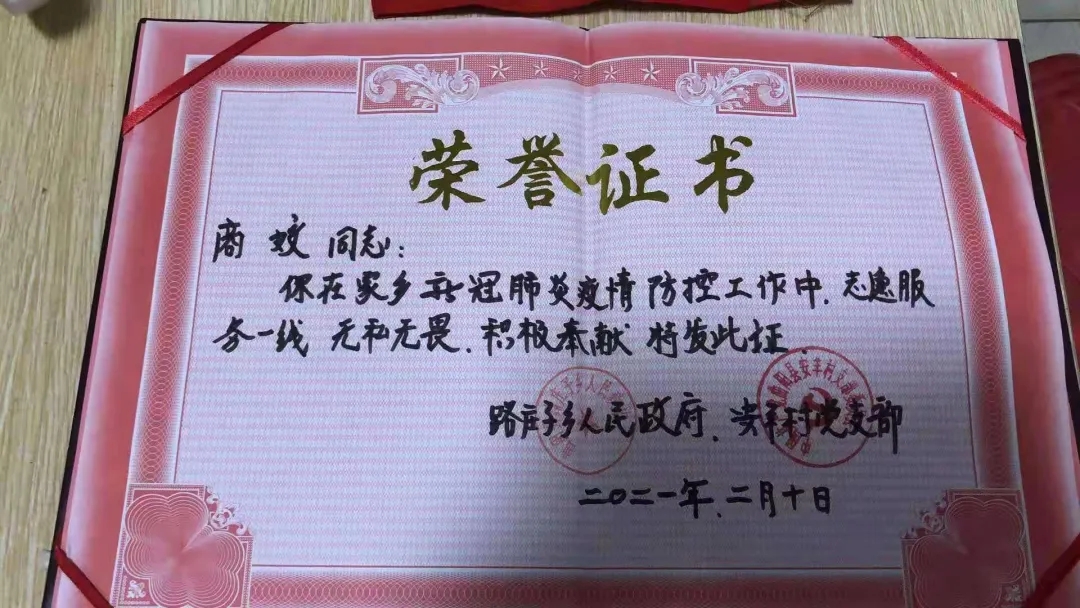 荣誉证书
商蛟同志：
你在家乡新冠肺炎疫情防控工作中，志愿服
务一线 无私无畏、积极奉献 特发此证
路庄子乡人民政府、安丰村党支部
二〇二一年、二月十日